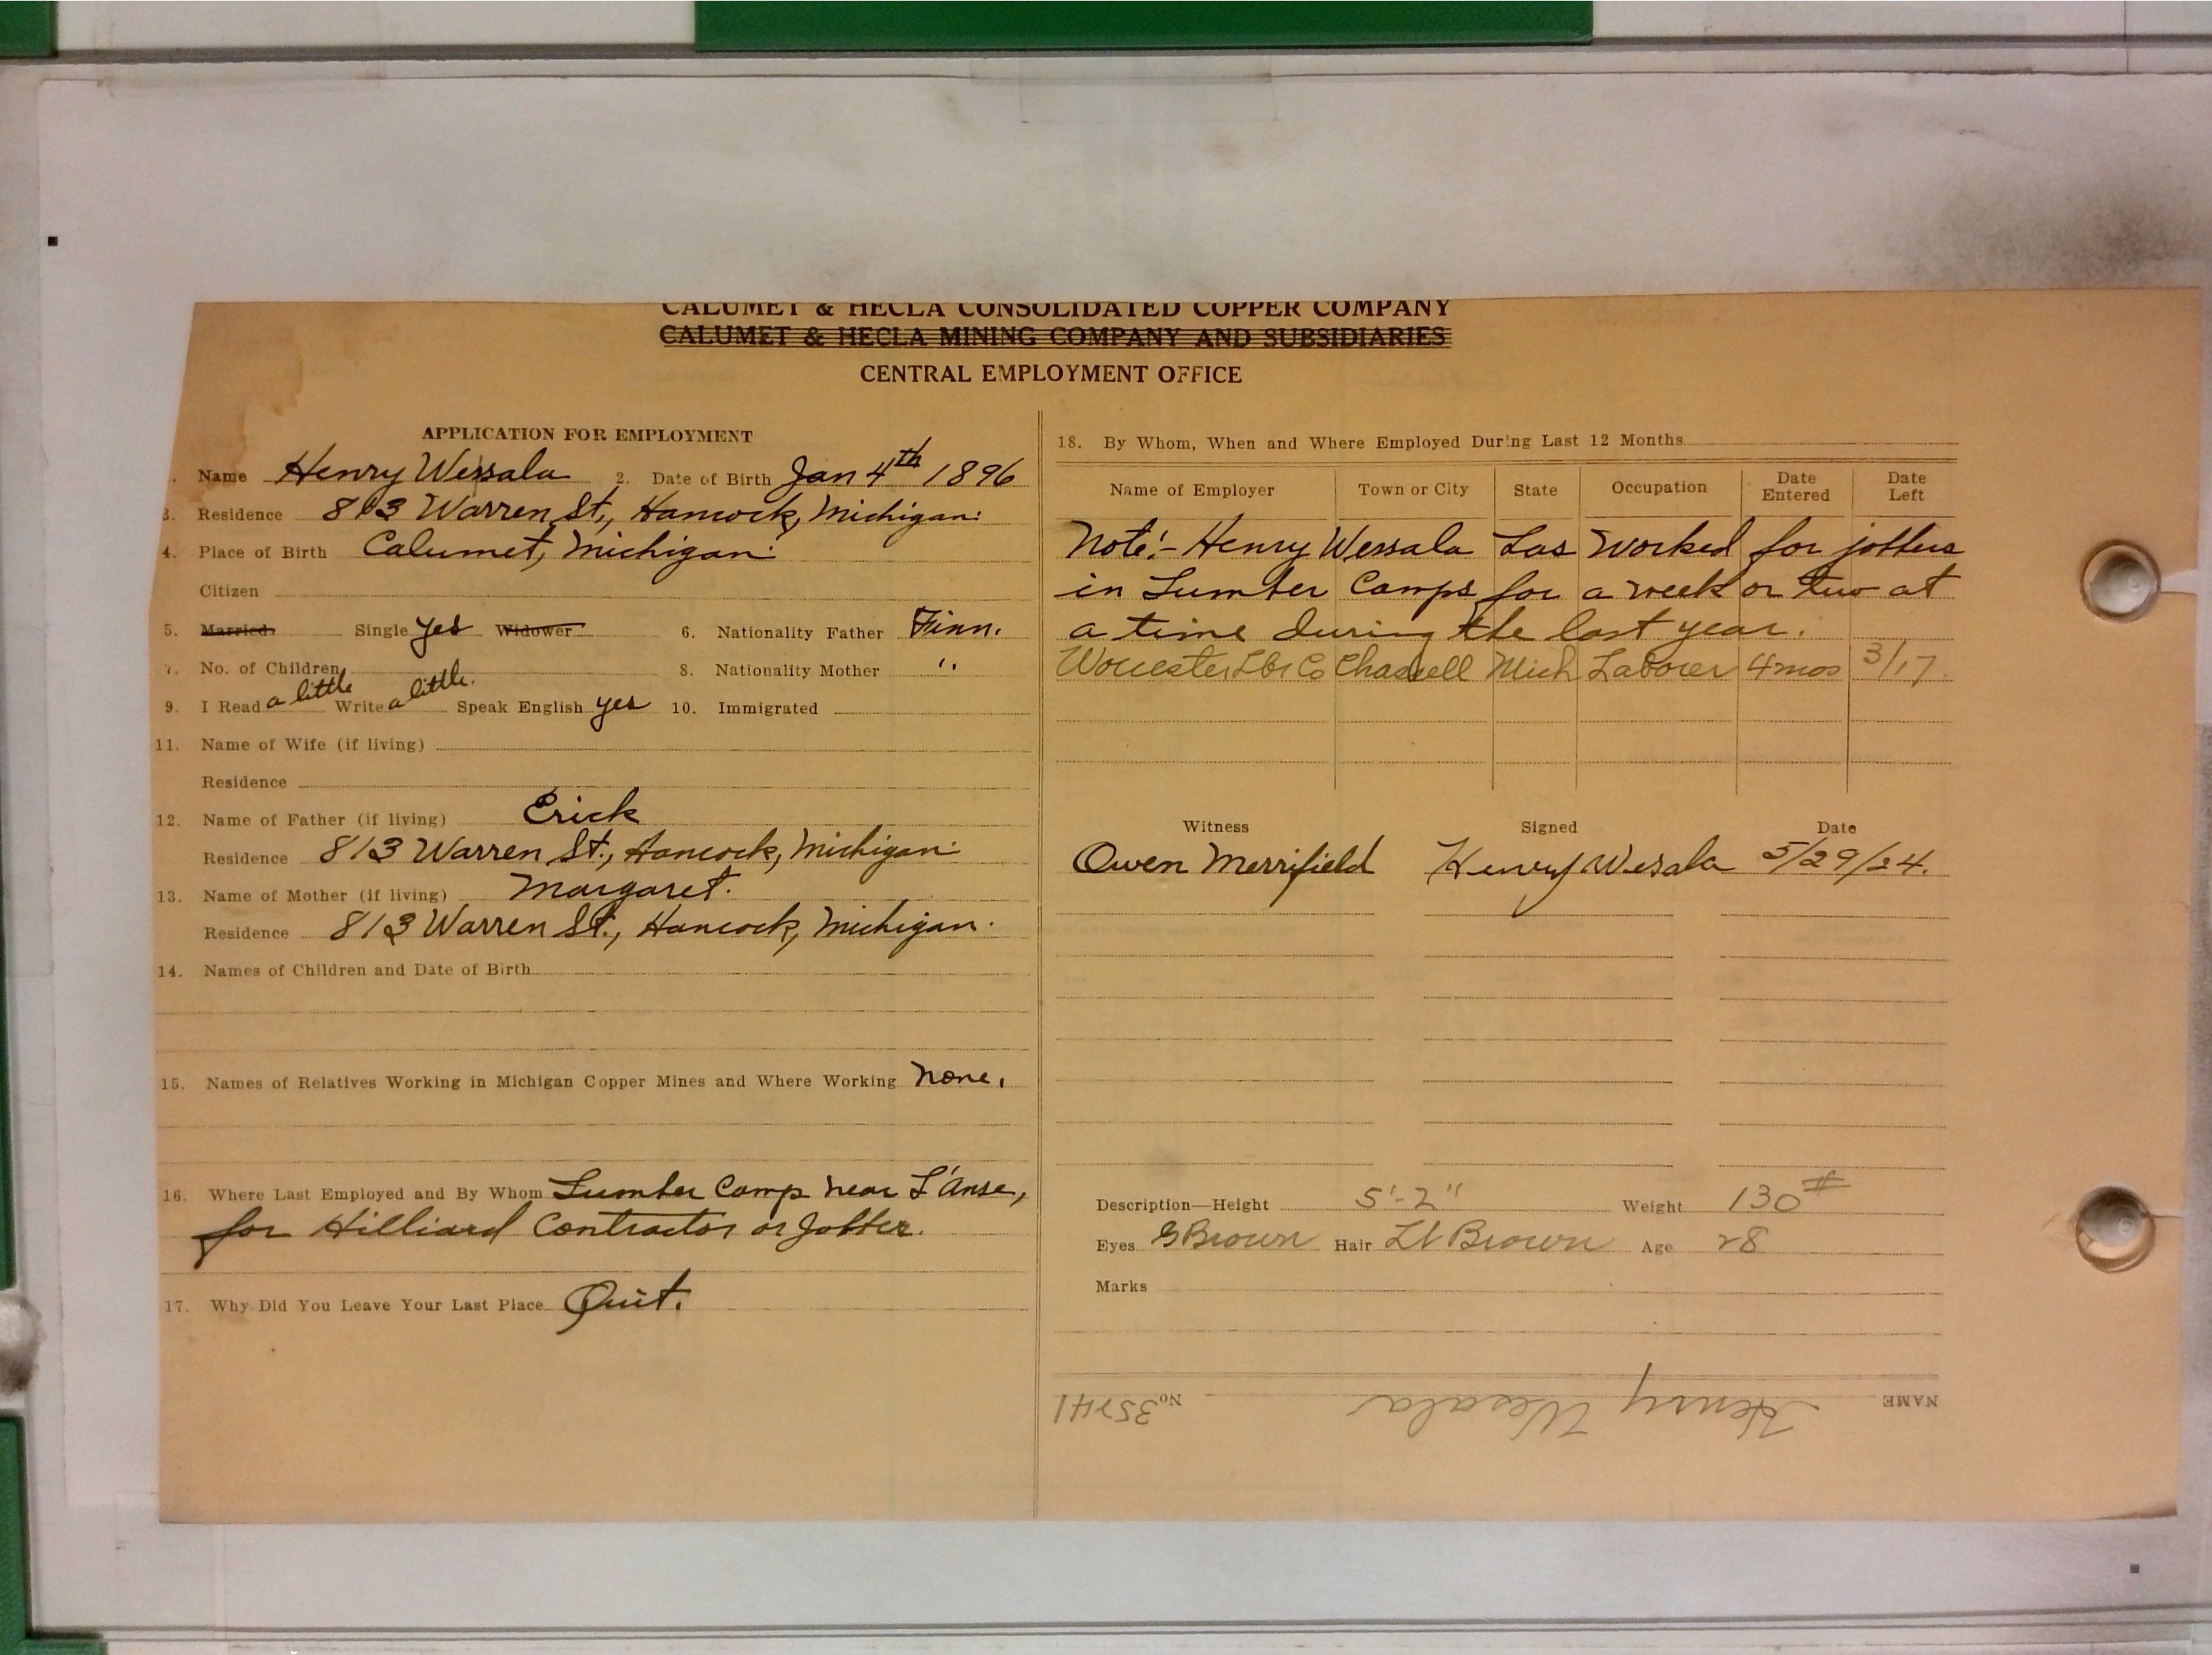 CALUMET & HECLA CONSOLIDATED COPPER COMPANY
CALUMET & HECLA MINING COMPANY AND SUBSIDIARIES
CENTRAL EMPLOYMENT OFFICE
APPLICATION FOR EMPLOYMENT
Name Henry Wessala 2. Date of Birth Jan 4th 1896
3. Residence 813 Warren St., Hancock, Michigan.
4. Place of Birth Calumet, Michigan.
Citizen
5. Married Single yes Widower 6. Nationality Father Finn.
7. No. of Children 8. Nationality Mother "
9. I Read a little Write a little. Speak English yes 10. Immigrated
11. Name of Wife (if living)
Residence
12. Name of Father (if living) Erick
Residence 813 Warren St., Hancock, Michigan.
13. Name of Mother (if living) Margaret.
Residence 813 Warren St., Hancock, Michigan.
14. Names of Children and Date of Birth
15. Names of Relatives Working in Michigan Copper Mines and Where Working None.
16. Where Last Employed and By Whom Lumber Camp near L'Anse,
for Hilliard Contractor or Jobber.
17. Why Did You Leave Your Last Place Quit.
18. By Whom, When and Where Employed During Last 12 Months
Name of Employer Town or City State Occupation Date Entered Date Left
Note:- Henry Wessala has worked for jobbers
in Lumber Camps for a week or two at
a time during the last year.
Worcester Lbr Co Chassell Mich Laborer 4 mos 3/17
Witness Signed Date
Owen Merrifield Henry Wesala 5/29/24.
Description—Height 5'-2" Weight 130#
Eyes G Brown Hair Lt Brown Age 28
Marks
NAME Henry Wesala No. 35741